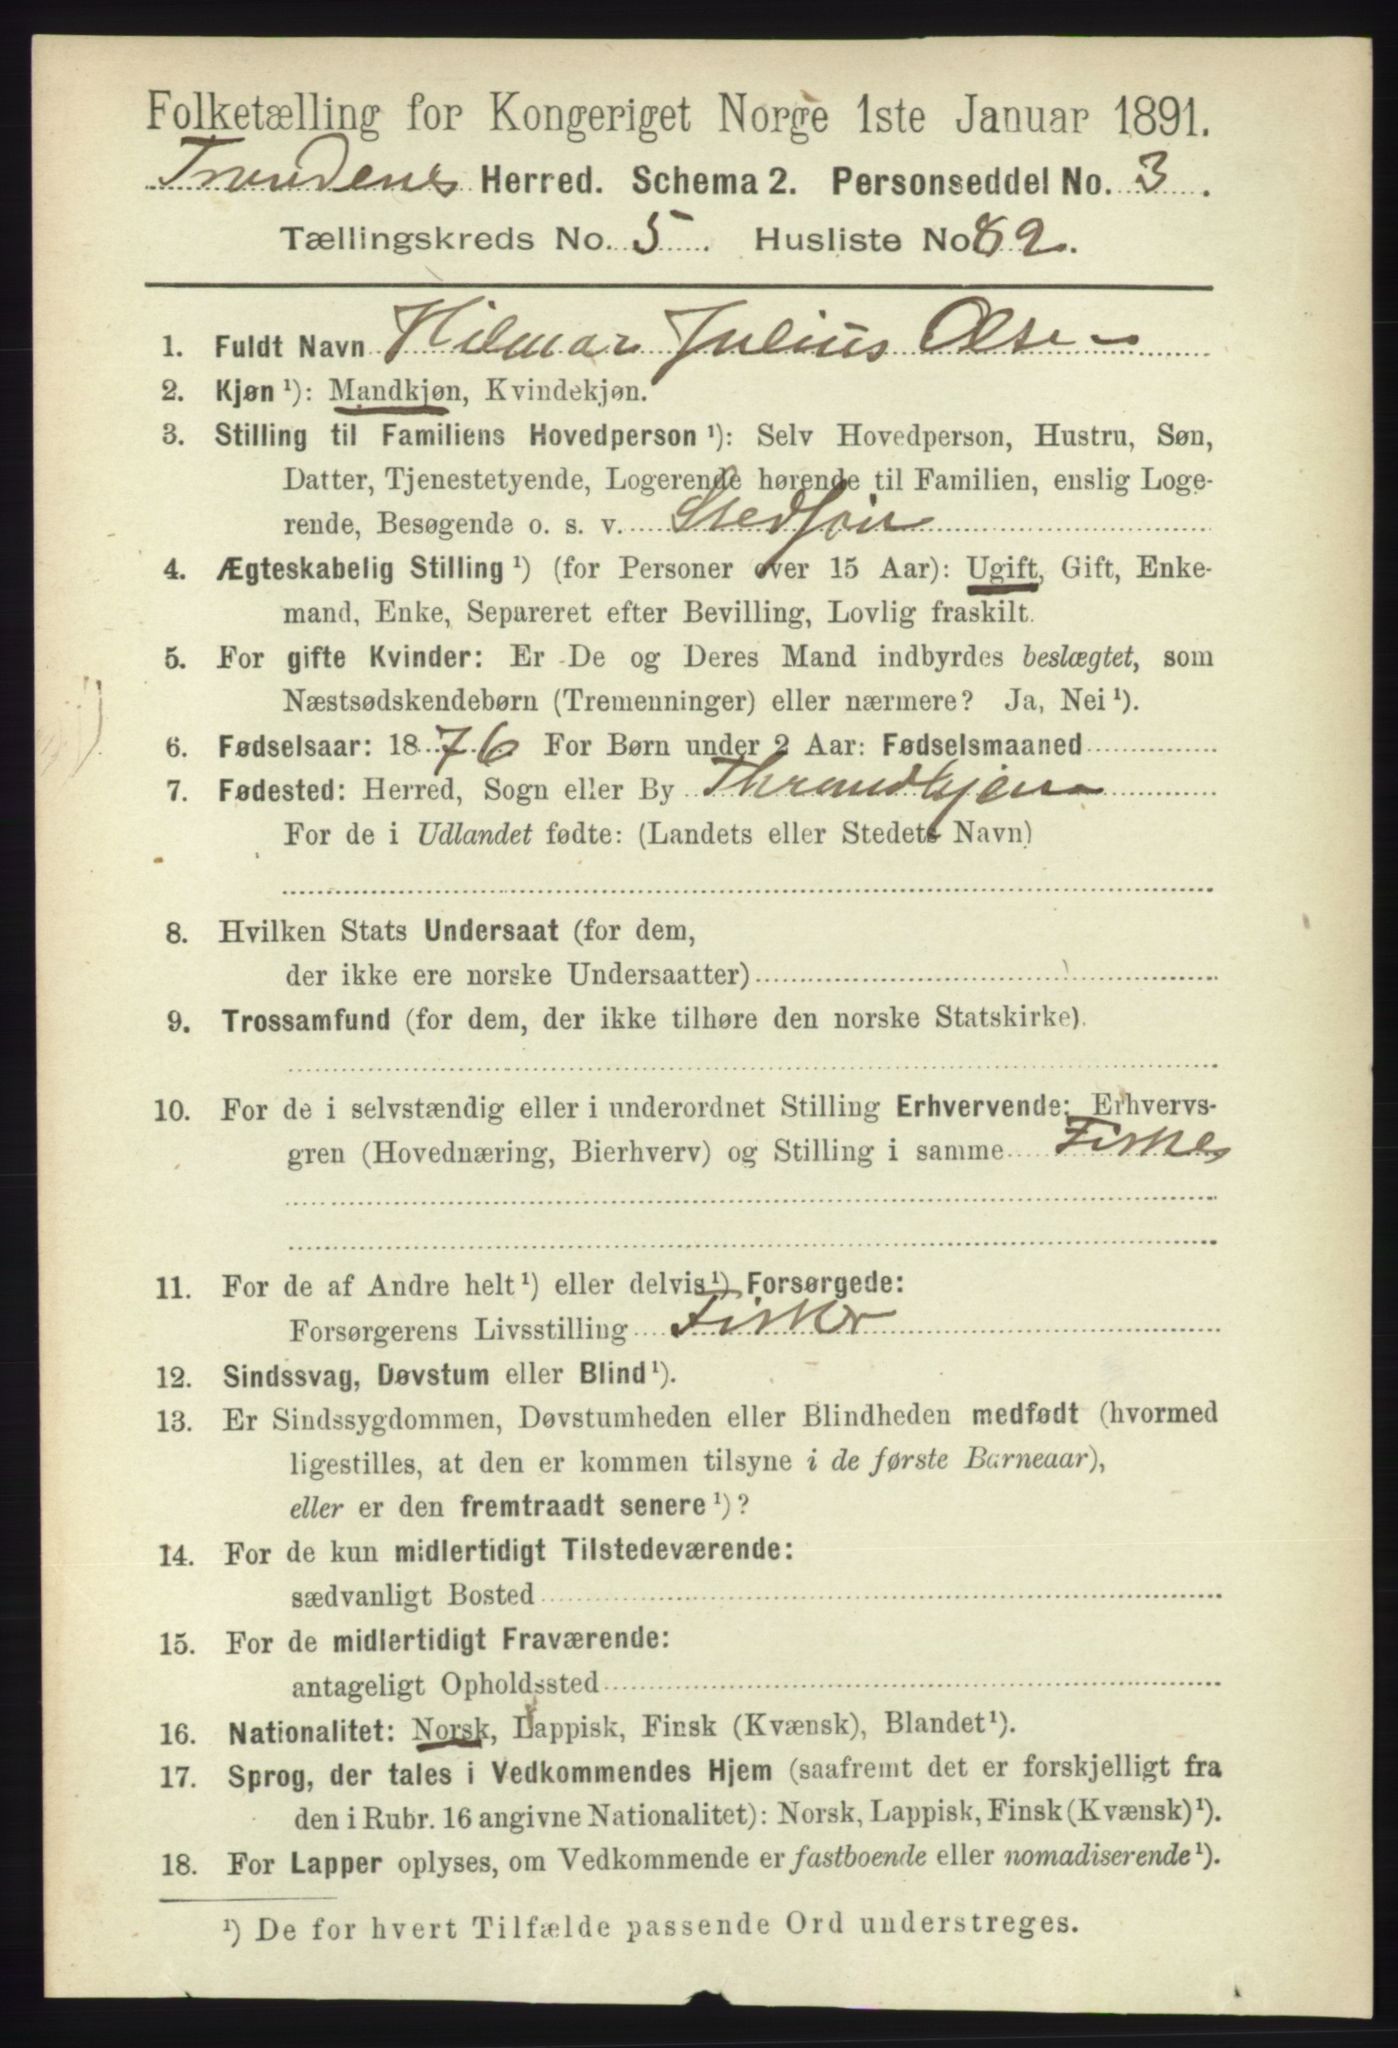 Folketælling for Kongeriget Norge 1ste Januar 1891.
Trondenes Herred. Schema 2. Personseddel No. 3.
Tællingskreds No. 5. Husliste No 82.
1. Fuldt Navn Hilmar Julius Olsen
2. Kjøn ¹): Mandkjøn, Kvindekjøn.
3. Stilling til Familiens Hovedperson ¹): Selv Hovedperson, Hustru, Søn,
Datter, Tjenestetyende, Logerende hørende til Familien, enslig Loge-
rende, Besøgende o. s. v. Stedsøn
4. Ægteskabelig Stilling ¹) (for Personer over 15 Aar): Ugift, Gift, Enke-
mand, Enke, Separeret efter Bevilling, Lovlig fraskilt.
5. For gifte Kvinder: Er De og Deres Mand indbyrdes beslægtet, som
Næstsødskendebørn (Tremenninger) eller nærmere? Ja, Nei ¹).
6. Fødselsaar: 1876 For Børn under 2 Aar: Fødselsmaaned
7. Fødested: Herred, Sogn eller By Throndhjem
For de i Udlandet fødte: (Landets eller Stedets Navn)
8. Hvilken Stats Undersaat (for dem,
der ikke ere norske Undersaatter)
9. Trossamfund (for dem, der ikke tilhøre den norske Statskirke).
10. For de i selvstændig eller i underordnet Stilling Erhvervende: Erhvervs-
gren (Hovednæring, Bierhverv) og Stilling i samme Fisker
11. For de af Andre helt ¹) eller delvis ¹) Forsørgede:
Forsørgerens Livsstilling Fisker
12. Sindssvag, Døvstum eller Blind ¹).
13. Er Sindssygdommen, Døvstumheden eller Blindheden medfødt (hvormed
ligestilles, at den er kommen tilsyne i de første Barneaar),
eller er den fremtraadt senere ¹)?
14. For de kun midlertidigt Tilstedeværende:
sædvanligt Bosted
15. For de midlertidigt Fraværende:
antageligt Opholdssted
16. Nationalitet: Norsk, Lappisk, Finsk (Kvænsk), Blandet ¹).
17. Sprog, der tales i Vedkommendes Hjem (saafremt det er forskjelligt fra
den i Rubr. 16 angivne Nationalitet): Norsk, Lappisk, Finsk (Kvænsk) ¹).
18. For Lapper oplyses, om Vedkommende er fastboende eller nomadiserende ¹).
¹) De for hvert Tilfælde passende Ord understreges.